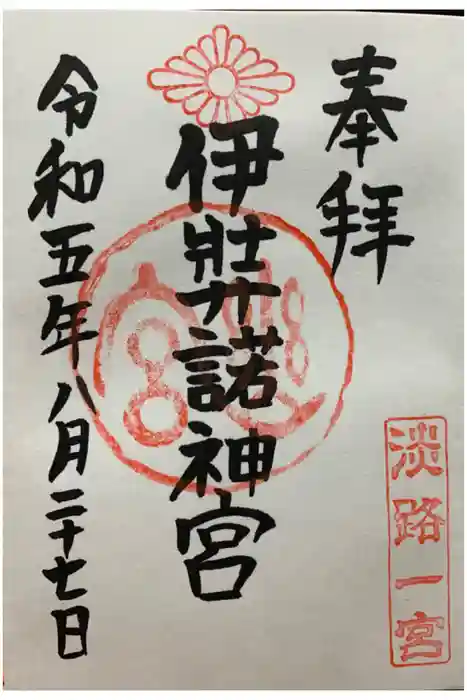 奉拝
淡路一宮
伊弉諾神宮
令和五年八月二十七日